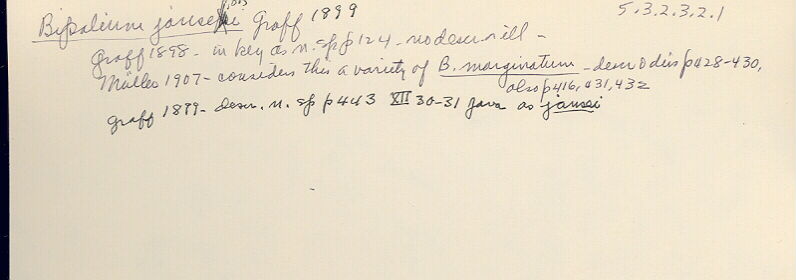 Bipalium jansei Graff 1899
5.3.2.3.2.1
Graff 1898 - in key as n. sp p 124 - no descr. n ill -
Müller 1907 - considers this a variety of B. marginatum - descr & dis p 428-430,
also p 416, 431, 432
Graff 1899 - descr. n. sp p 443 XII 30-31 Java as jansei